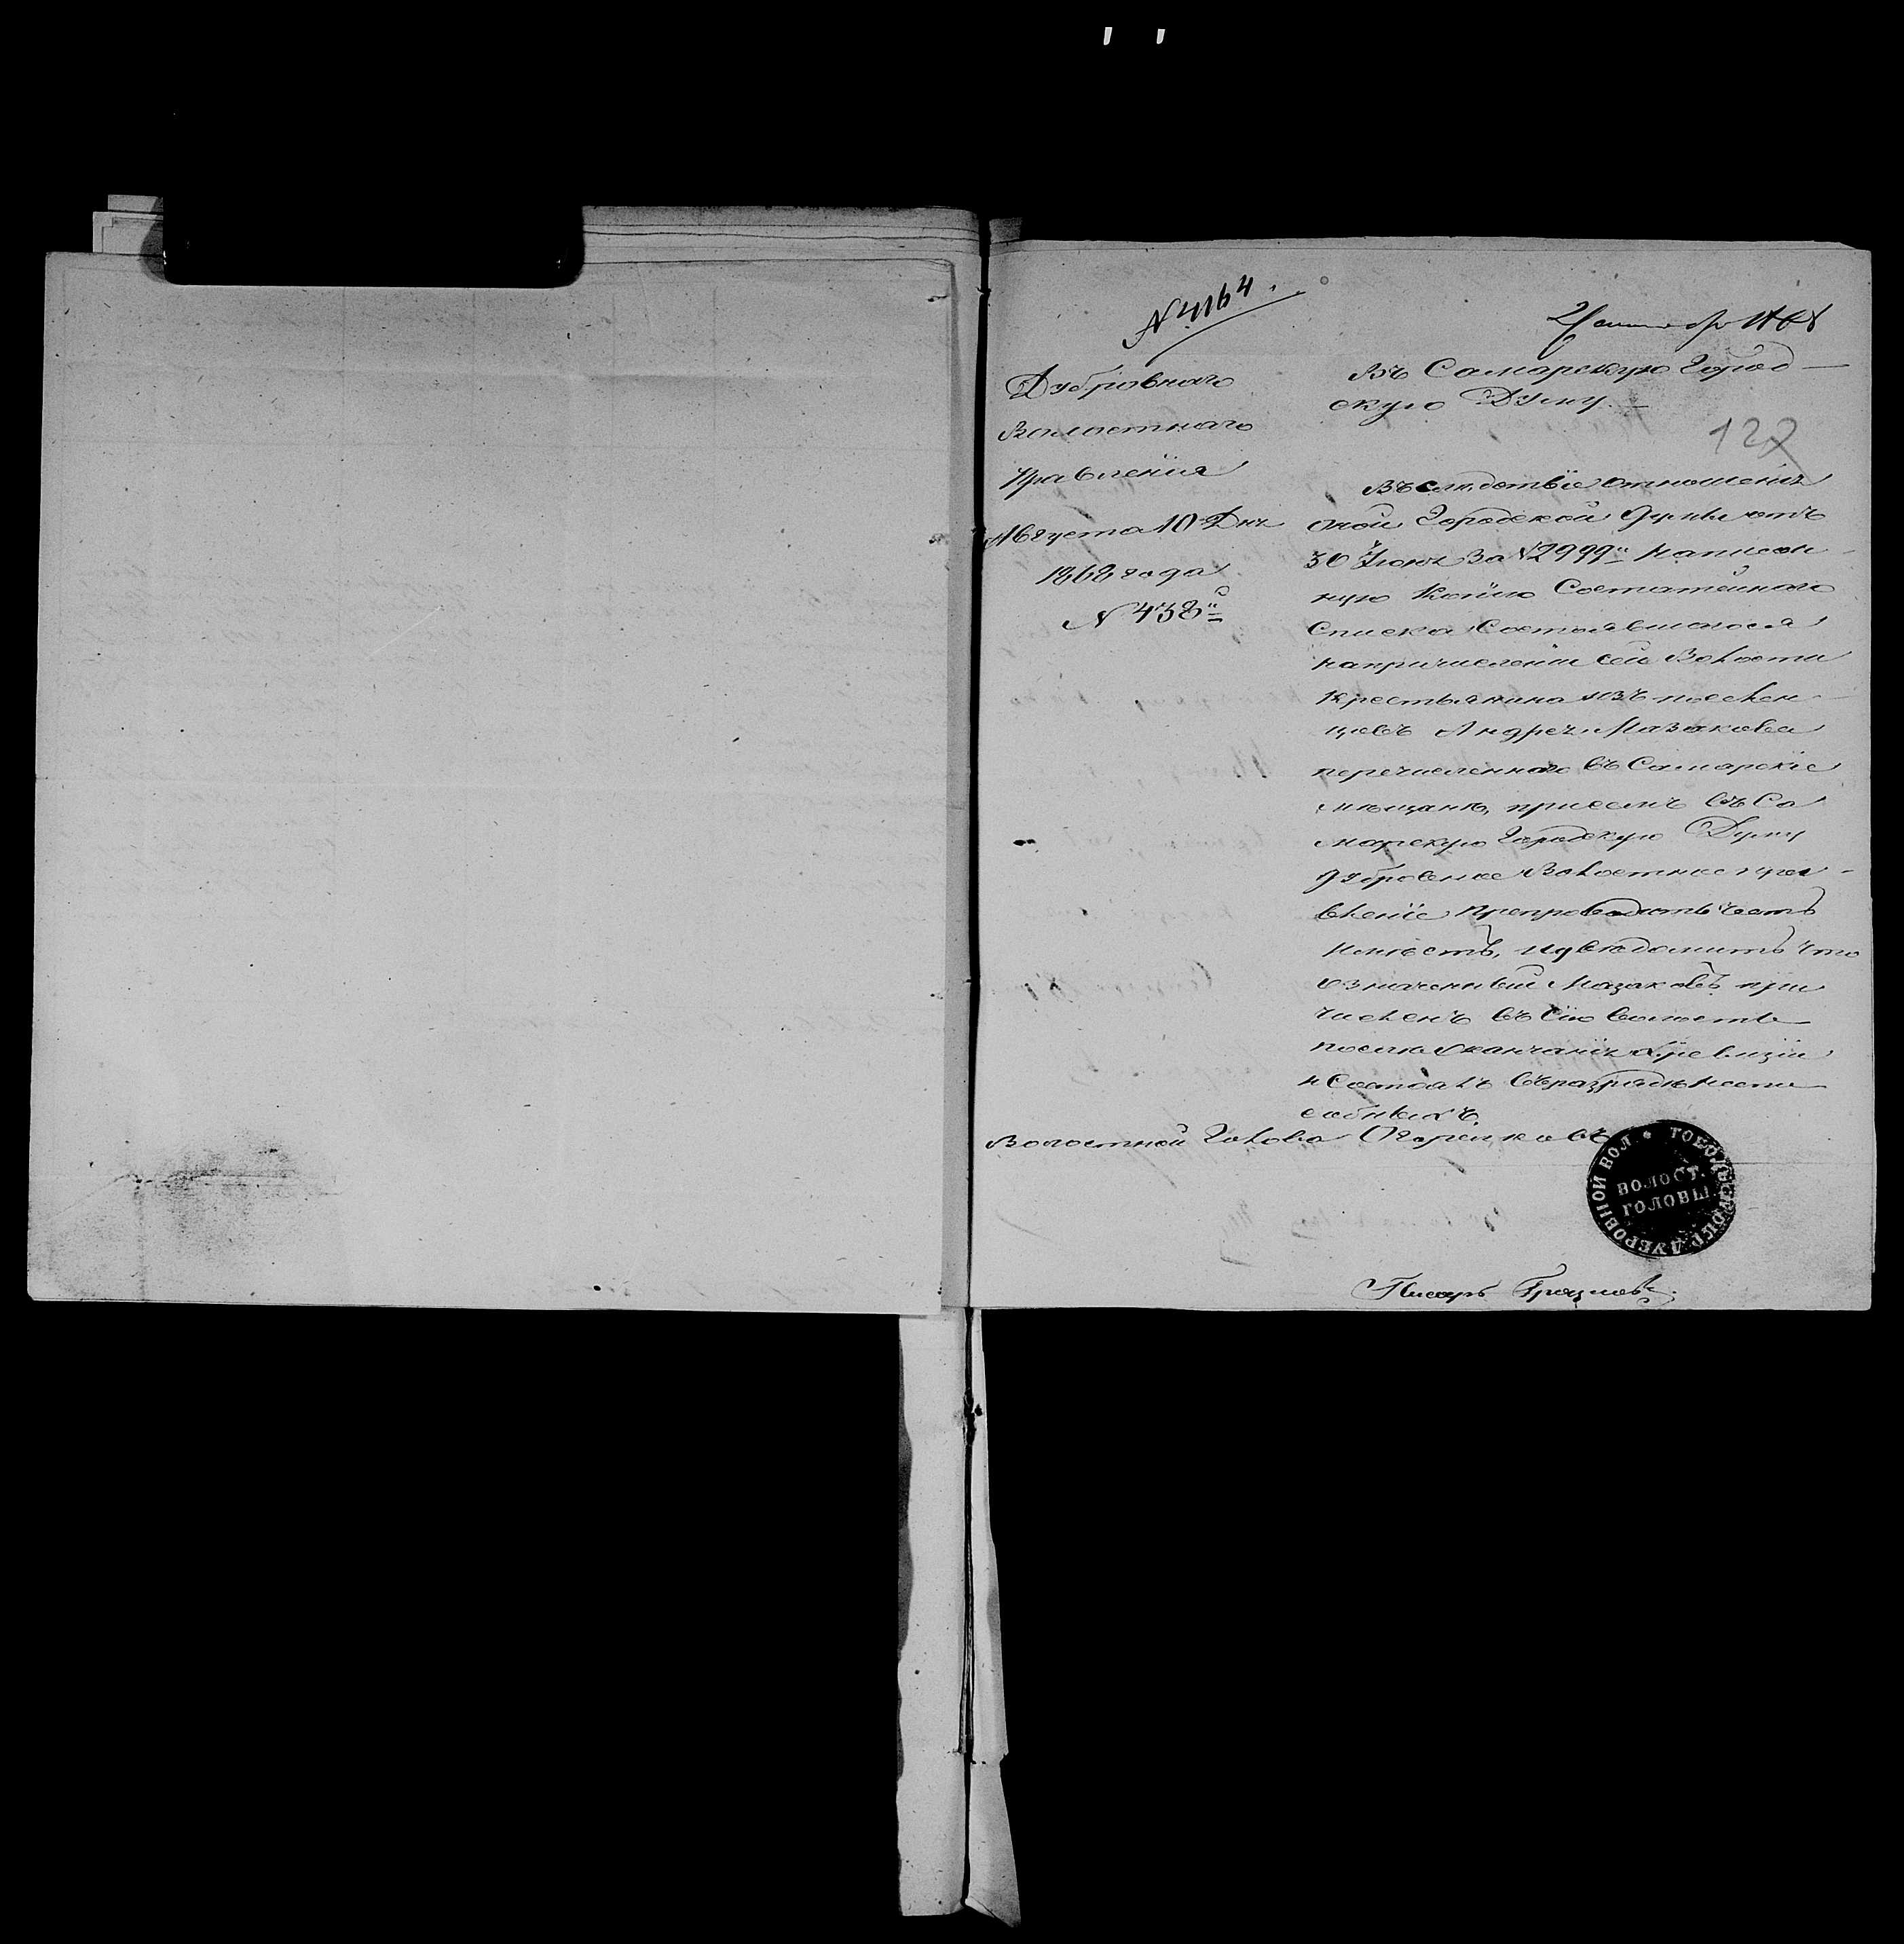 № 4164.
2 сентября 1868
Дубровнаго
Волостнаго
Правленія
Августа 10 Дня
1868 года
№ 438
Въ Самарскую Город-
скую Думу.
122
Въ следствіе отношенія
оной Городской Думы отъ
30 Іюня За №2999 написан-
ную Копію Состатейнаго
Списка Состоявшагося
напричисленіи сей Волости
крестьянина изъ поселен-
цовъ Андрея Мазакова
перечисленнаго въ Самарскіе
мещане, присемъ въ Са
марскую Городскую Думу
Дубровное Волостное прав-
леніе препроводить честь
имѣетъ, и уведомить что
означенный Мазаковъ при
численъ въ сію волость
после окончанія ревизіи
и Состоялъ въ разрядѣ неспо
собныхъ.
Волостной Голова Огаренковъ
ТОБОЛЬС. ОКР. ДУБРОВНОЙ ВОЛ.
ВОЛОСТ.
ГОЛОВЫ
Писарь Грязновъ